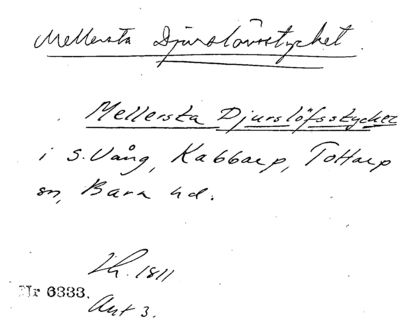 Mellersta Djurslövsstycket
Mellersta Djurslöfsstycket
i S. Vång, Kabbarp, Tottarp
sn, Bara hd.
Lh. 1811
Nr 6333.
Akt 3.